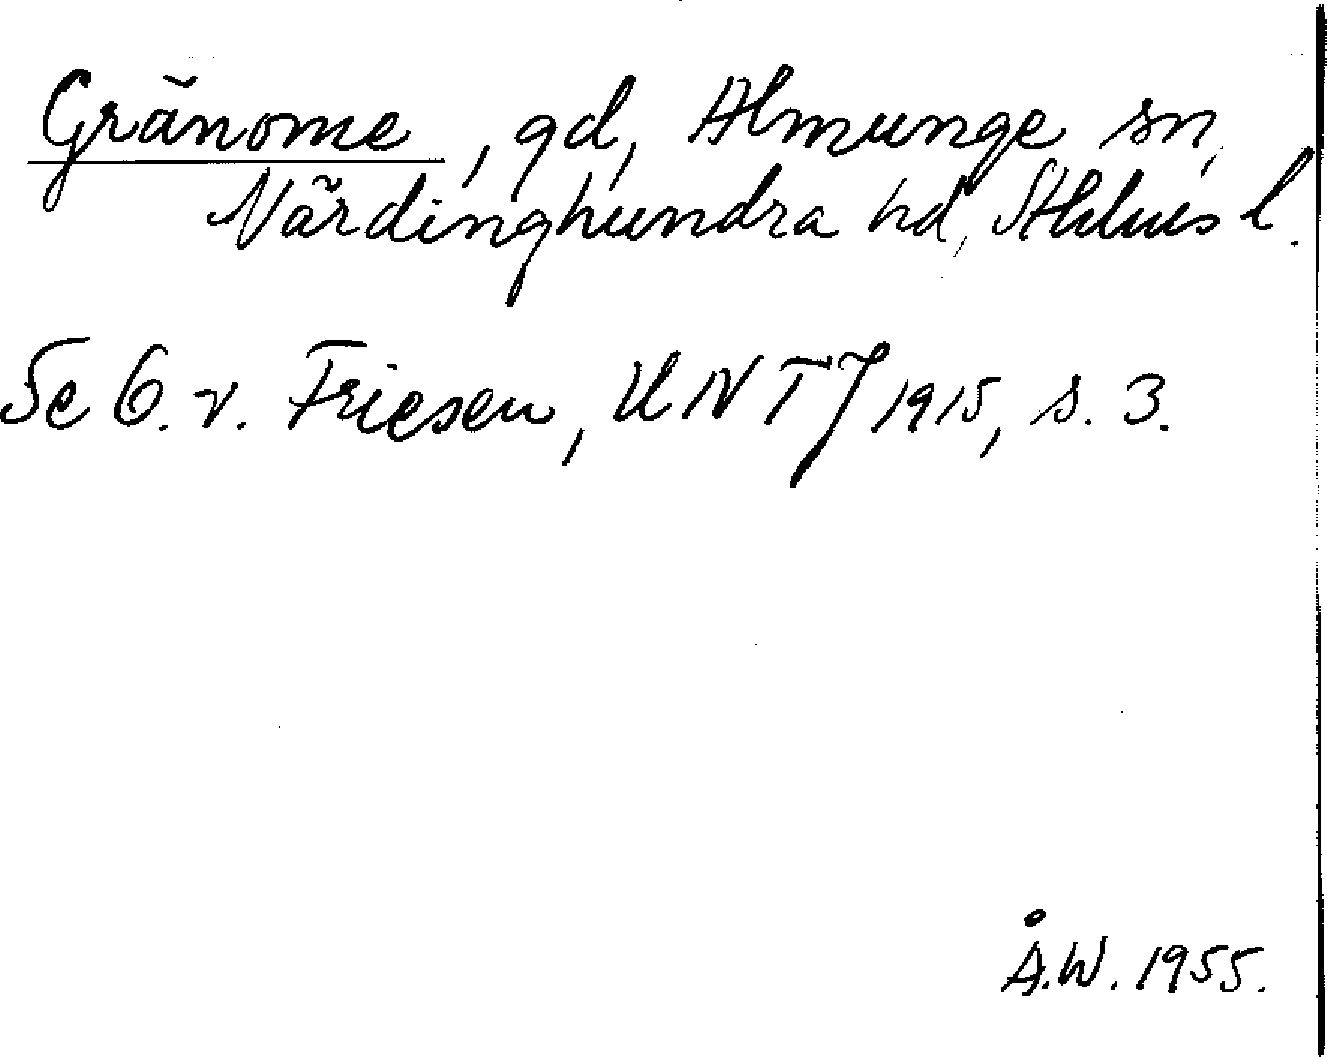 Gränome, gd, Almunge sn,
Närdinghundra hd, Sthlms l.
Se O. v. Friesen, UNTJ 1915, s. 3.
Å.W. 1955.